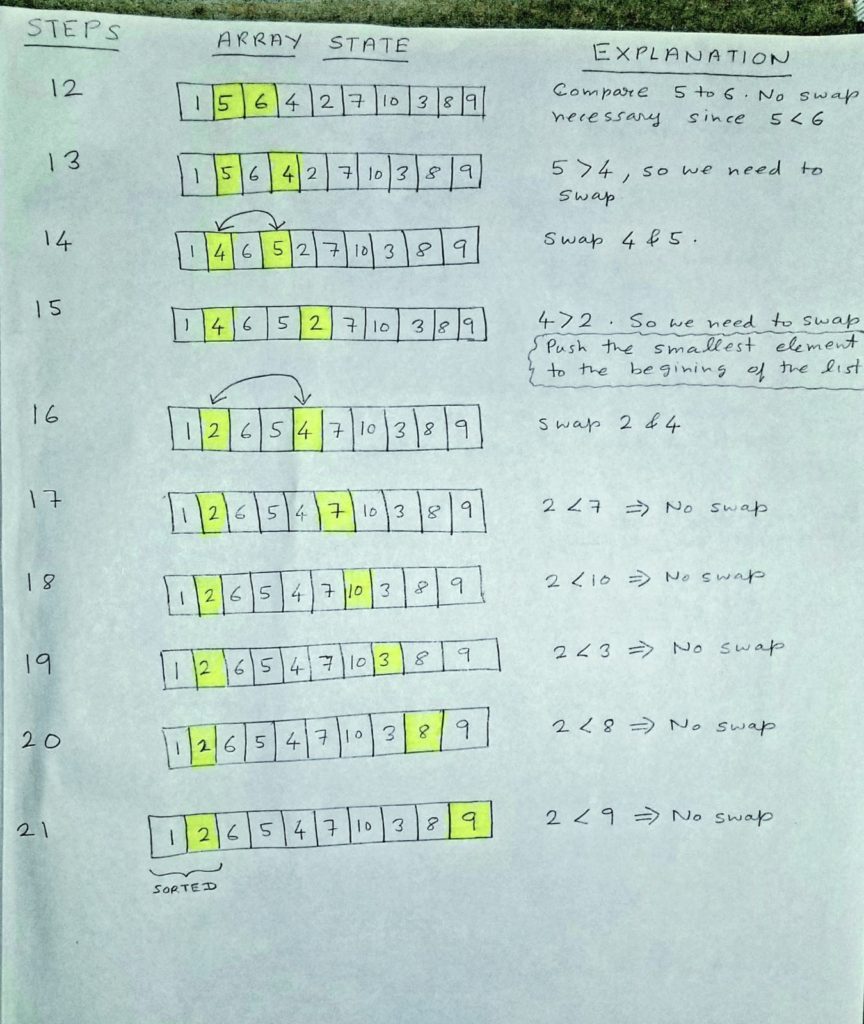 STEPS ARRAY STATE EXPLANATION
12 1 5 6 4 2 7 10 3 8 9 Compare 5 to 6. No swap
necessary since 5 < 6
13 1 5 6 4 2 7 10 3 8 9 5 > 4, so we need to
swap
14 1 4 6 5 2 7 10 3 8 9 swap 4 & 5.
15 1 4 6 5 2 7 10 3 8 9 4 > 2. So we need to swap
Push the smallest element
to the begining of the list
16 1 2 6 5 4 7 10 3 8 9 swap 2 & 4
17 1 2 6 5 4 7 10 3 8 9 2 < 7 ⇒ No swap
18 1 2 6 5 4 7 10 3 8 9 2 < 10 ⇒ No swap
19 1 2 6 5 4 7 10 3 8 9 2 < 3 ⇒ No swap
20 1 2 6 5 4 7 10 3 8 9 2 < 8 ⇒ No swap
21 1 2 6 5 4 7 10 3 8 9 2 < 9 ⇒ No swap
SORTED